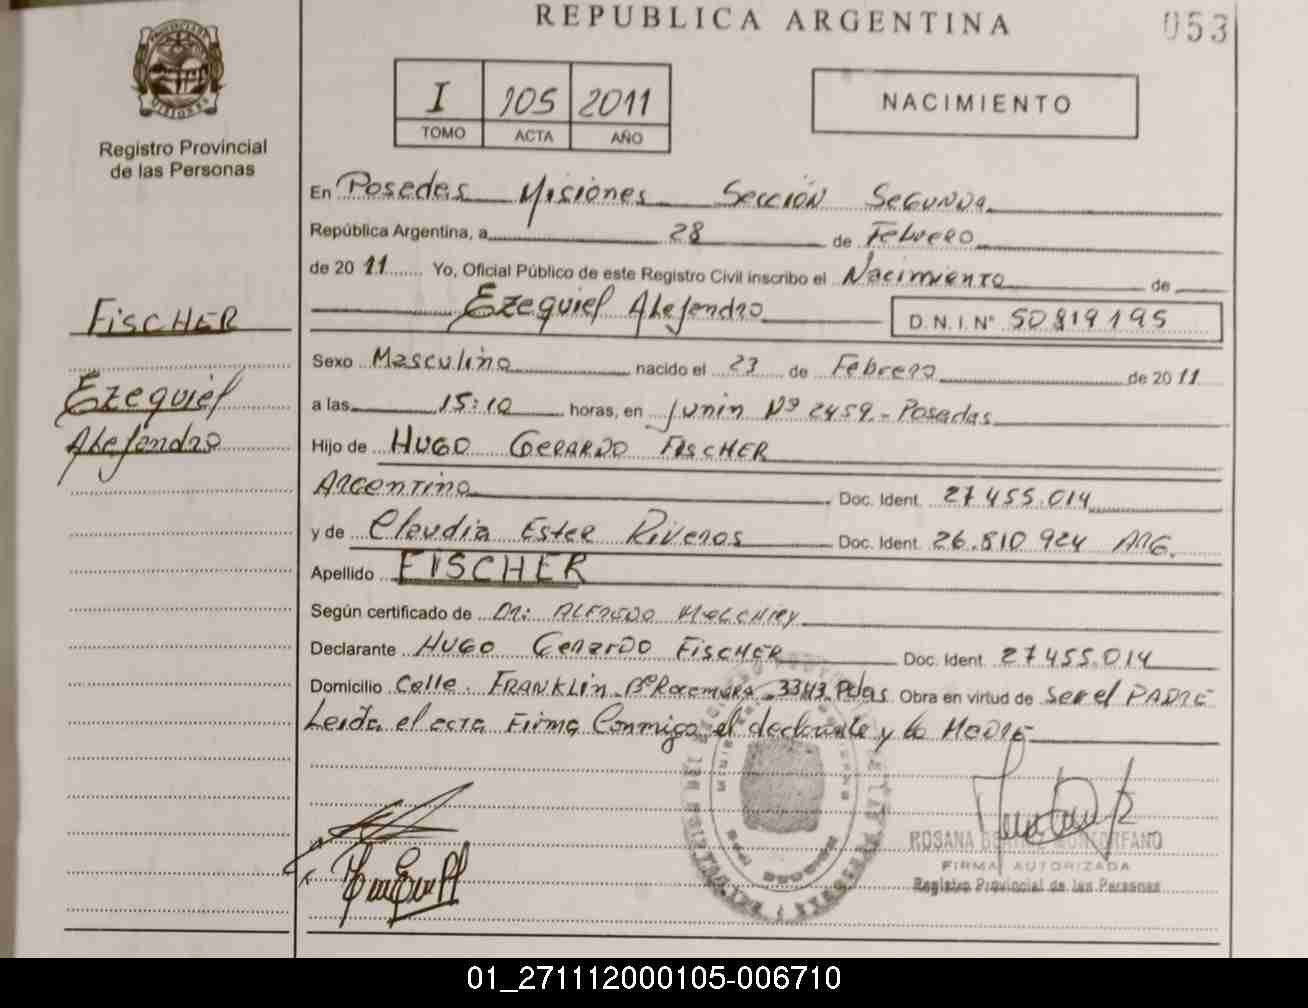 REPUBLICA ARGENTINA
053
PROVINCIA DE MISIONES
Registro Provincial
de las Personas
I 105 2011
TOMO ACTA AÑO
NACIMIENTO
En Posadas Misiones Sección Segunda
República Argentina, a 28 de Febrero
de 2011 Yo, Oficial Público de este Registro Civil inscribo el Nacimiento de
Ezequiel Alejandro D.N.I.Nº 50819195
FISCHER
Ezequiel
Alejandro
Sexo Masculino nacido el 23 de Febrero de 2011
a las 15:10 horas, en Junin Nº 2459 - Posadas
Hijo de HUGO GERARDO FISCHER
Argentino Doc. Ident. 27455.014
y de Claudia Ester Riveros Doc. Ident. 26.810 924 ARG.
Apellido FISCHER
Según certificado de Dr: ALFREDO
Declarante HUGO Gerardo FISCHER Doc. Ident. 27455.014
Domicilio Calle FRANKLIN Bº Rocamora 3343 Pdas Obra en virtud de Ser el PADRE
Leida el acta Firma Conmigo el declarante y la Madre
ROSANA
FIRMA AUTORIZADA
Registro Provincial de las Personas
01_271112000105-006710